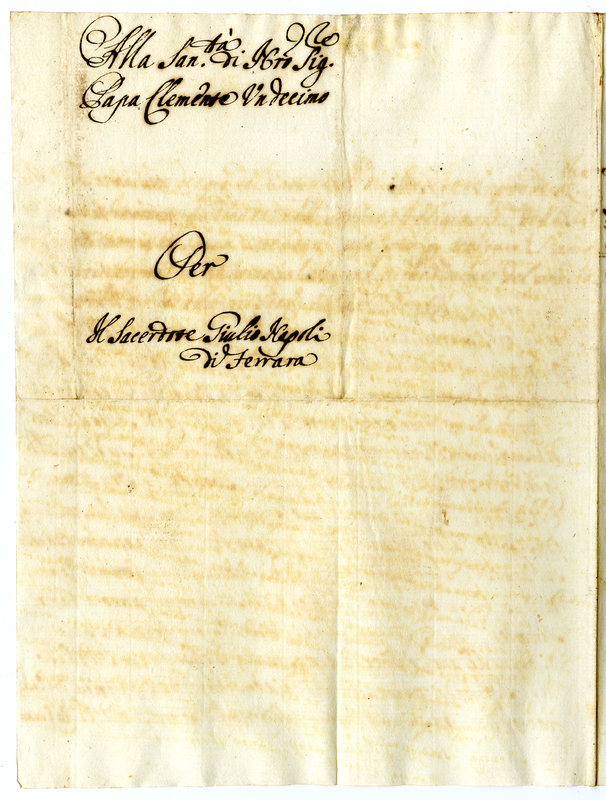 Alla San.tà di Nro Sig.re
Papa Clemente Undecimo
Per
Il Sacerdote Giulio Napoli
di Ferrara